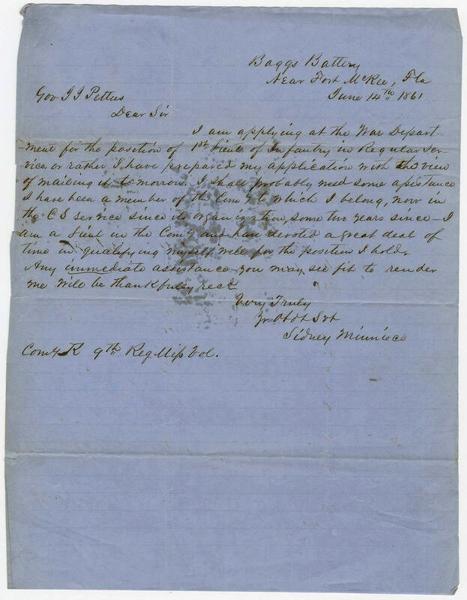 Baggs Battery
Near Fort McRee, Fla
June 14th 1861
Gov J J Pettus
Dear Sir
I am applying at the War Depart
ment for the position of 1st Lieut of Infantry in Regular Ser
vice or rather I have prepared my application with the view
of mailing it tomorrow. I shall probably need some assistance
I have been a member of the Comy to which I belong, now in
the C S service since its organization, some two years since - I
am a Lieut in the Comy and have devoted a great deal of
time in qualifying myself well for the position I hold.
Any immediate assistance you may see fit to render
me will be thankfully recd
Very Truly
Yr Obdt Svt
Sidney
Comy K 9th Reg Miss Vol.